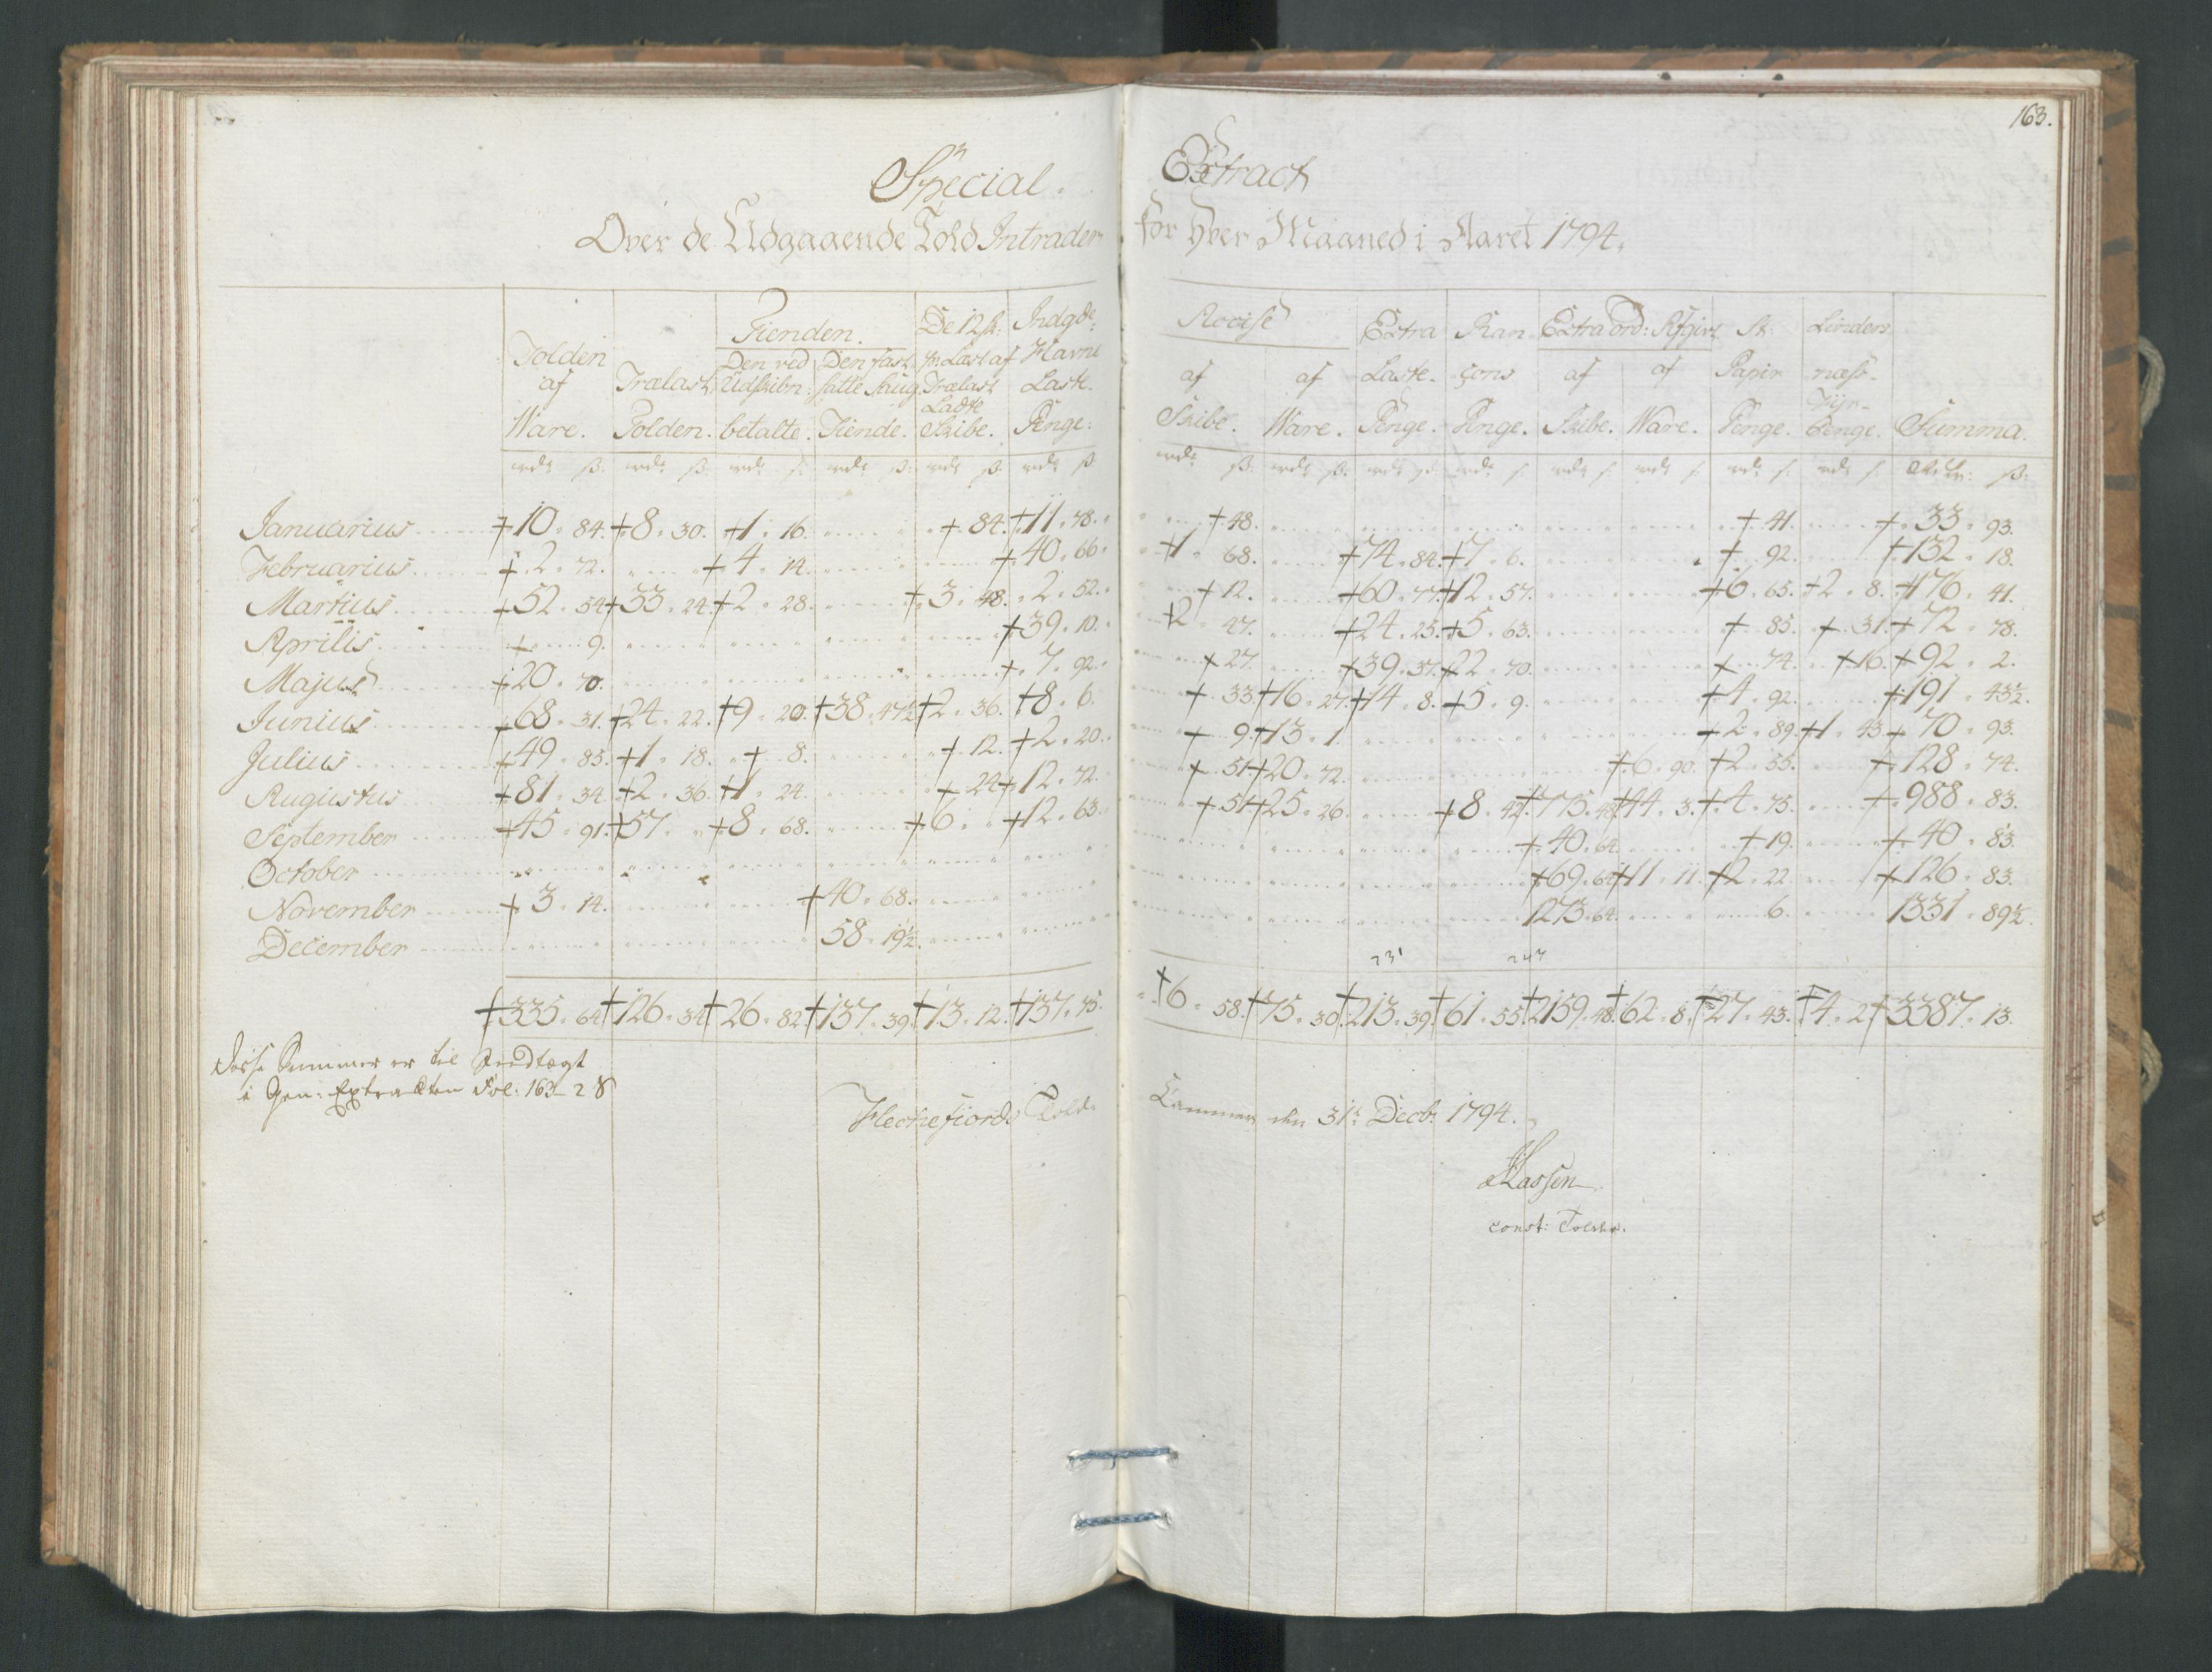 163.
Special Extract
Over de Udgaaende Told Intrader for Hver Maaned i Aaret 1794.
Tolden af Ware. | Trælast Tolden. | Tienden. Den ved Udskibn: betalte. | Den fast satte Saug Tiende. | De 12 ſk: pr: Læst af Trælast Ladte Skibe. | Indgde: Havne Læste Penge. | Accise af Skibe. | af Ware. | Extra Læste. Penge. | Ran çons Penge. | Extraord: Afgivt af Skibe. | af Ware. | St: Papir Penge. | Lindes næss- Fyr- Penge. | Summa.
rdr ß: | rdr ß: | rdr ß: | rdr ß: | rdr ß: | rdr ß: | rdr ß: | rdr ß: | rdr ß: | rdr ß: | rdr ß: | rdr ß: | rdr ß: | rdr ß: | ß:
Januarius | 10. 84. | 8. 30. | 1. 16. | | 84. | 11. 78. | 48. | | | | | | 41. | | 33. 93.
Februarius | 2. 72. | | 4. 14. | | | 40. 66. | 1. 68. | | 74. 84. | 7. 6. | | | 92. | | 132. 18.
Martius | 52. 54. | 33. 24. | 2. 28. | | 3. 48. | 2. 52. | 12. | | 60. 77. | 12. 57. | | | 6. 65. | 2. 8. | 176. 41.
Aprilis | 9. | | | | | 39. 10. | 2. 47. | | 24. 25. | 5. 63. | | | 85. | 31. | 72. 78.
Majus | 20. 70. | | | | | 7. 92. | 27. | | 39. 37. | 22. 70. | | | 74. | 16. | 92. 2.
Junius | 68. 31. | 24. 22. | 9. 20. | 38. 47½ | 2. 36. | 8. 6. | 33. | 16. 27. | 14. 8. | 5. 9. | | | 4. 92. | | 191. 43½.
Julius | 49. 85. | 1. 18. | 8. | | 12. | 2. 20. | 9. | 13. 1. | | | | | 2. 89. | 1. 43. | 70. 93.
Augustus | 81. 34. | 2. 36. | 1. 24. | | 24. | 12. 72. | 51. | 20. 72. | | | | 6. 90. | 2. 55. | | 128. 74.
September | 45. 91. | 57. | 8. 68. | | 6. | 12. 63. | 51. | 25. 26. | | 8. 42. | 775. 48. | 44. 3. | 4. 75. | | 988. 83.
October | | | | | | | | | | | 40. 64. | | 19. | | 40. 83.
November | 3. 14. | | | 40. 68. | | | | | | | 69. 64. | 11. 11. | 2. 22. | | 126. 83.
December | | | | 58. 19½. | | | | | | | 1273. 64. | | 6. | | 1331. 89½.
231 247
335. 64. | 126. 34. | 26. 82. | 137. 39. | 13. 12. | 137. 75. | 6. 58. | 75. 30. | 213. 39. | 61. 55. | 2159. 48. | 62. 8. | 27. 43. | 4. 2. | 3387. 13.
Disse Summer er til Indtægt
i Gen: Extracten Fol: 163- 28
Flechefiords Told-Kammer den 31t: Decb: 1794.
const: Tolder.